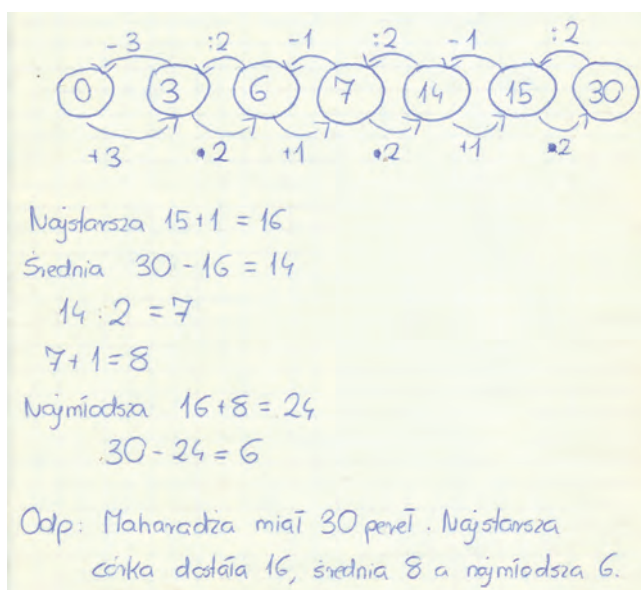 -3 :2 -1 :2 -1 :2
0 3 6 7 14 15 30
+3 •2 +1 •2 +1 •2
Najstarsza 15+1 = 16
Średnia 30 - 16 = 14
14 : 2 = 7
7+1=8
Najmłodsza 16+8 = 24
30 - 24 = 6
Odp: Maharadża miał 30 pereł. Najstarsza
córka dostała 16, średnia 8 a najmłodsza 6.